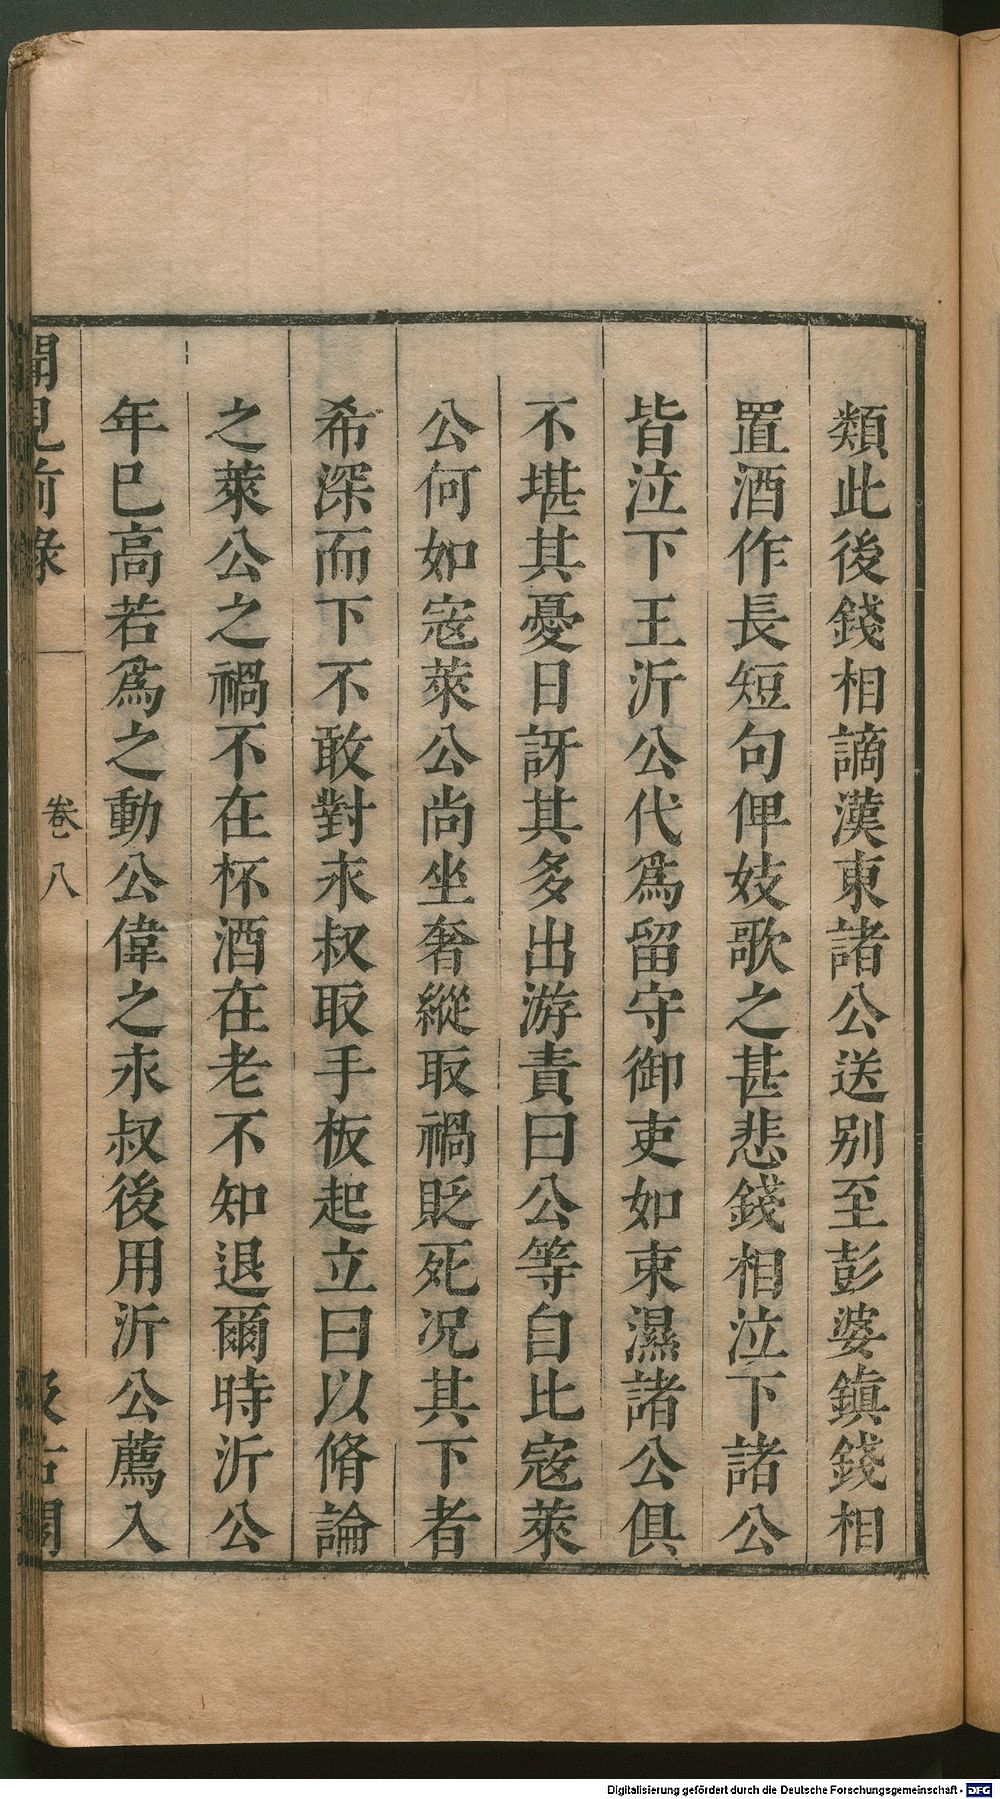 類此後錢相謫漢東諸公送别至彭婆鎮錢相
置酒作長短句俾妓歌之甚悲錢相泣下諸公
皆泣下王沂公代爲留守御吏如束濕諸公俱
不堪其憂日訝其多出游責曰公等自比寇萊
公何如寇萊公尚坐奢縱取禍貶死况其下者
希深而下不敢對永叔取手板起立曰以脩論
之萊公之禍不在杯酒在老不知退爾時沂公
年巳高若爲之動公偉之永叔後用沂公薦入
聞見前錄 卷八 汲古閣
Digitalisierung gefördert durch die Deutsche Forschungsgemeinschaft - DFG